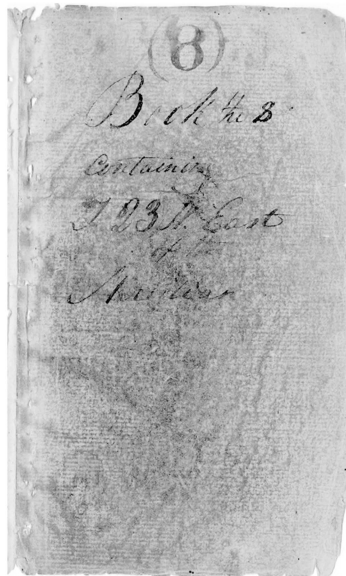 (8)
Book the 8
Containing
T 23 N. East
of the
Meridian